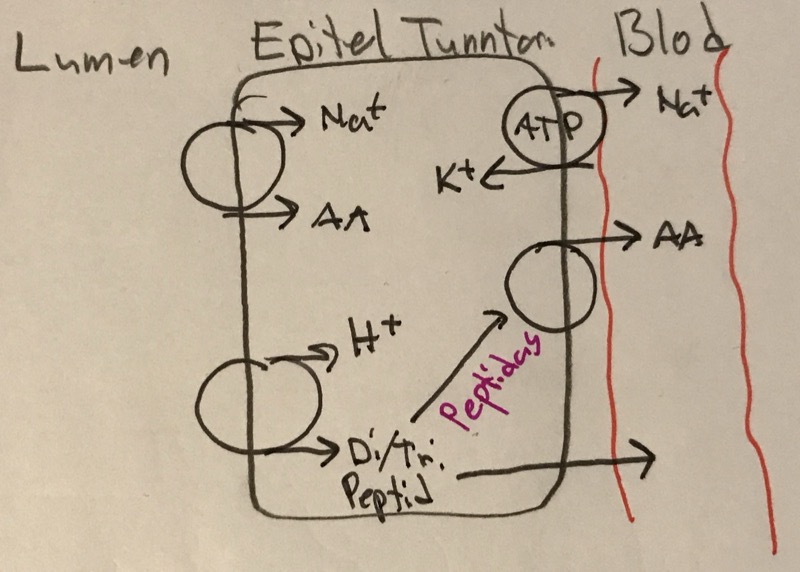 Lumen
Epitel Tunntarm
Blod
Na+
AA
ATP
Na+
K+
AA
H+
Di/Tri.
Peptid
Peptidas